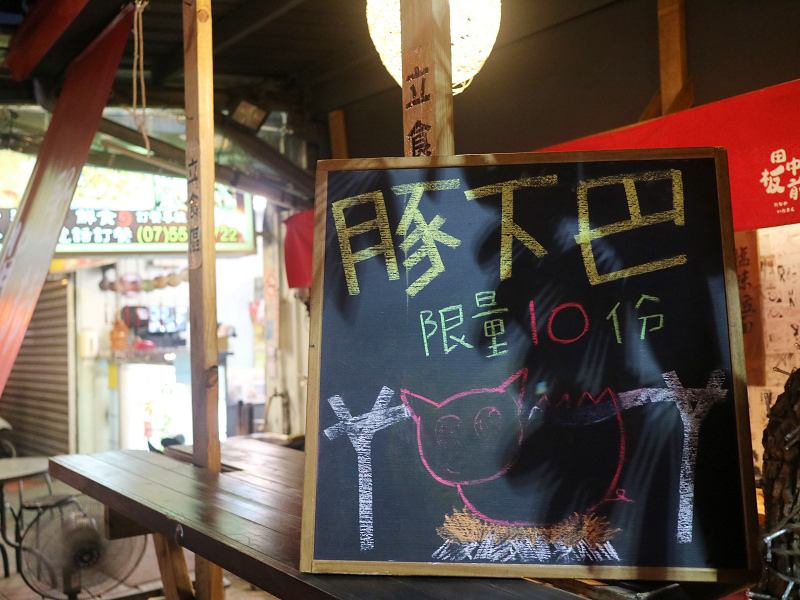 立食
立食區
豚下巴
限量10份
田中
板前
鮮食
訂餐
(07)55
722